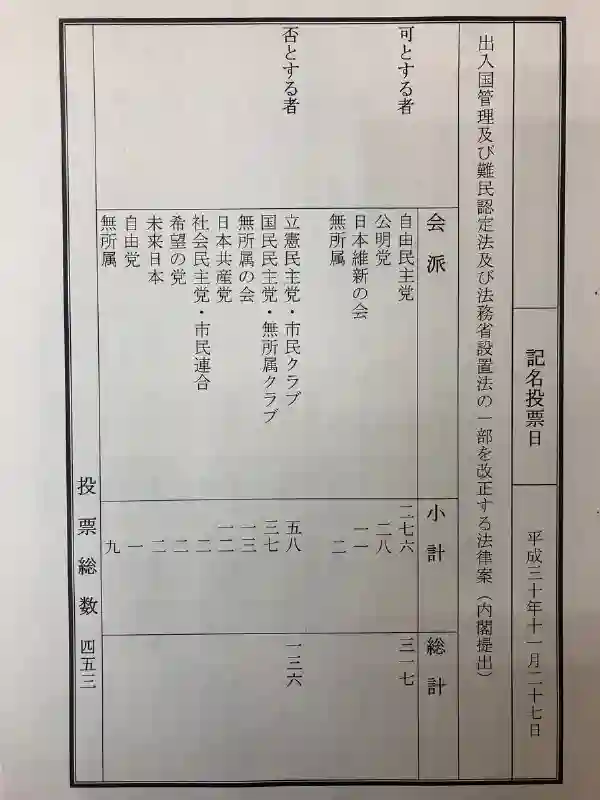 記名投票日 平成三十年十一月二十七日
出入国管理及び難民認定法及び法務省設置法の一部を改正する法律案（内閣提出）
会派 小計 総計
可とする者 自由民主党 二七六 三一七
公明党 二八
日本維新の会 一一
無所属 二
否とする者 立憲民主党・市民クラブ 五八 一三六
国民民主党・無所属クラブ 三七
無所属の会 一三
日本共産党 一二
社会民主党・市民連合 二
希望の党 二
未来日本 二
自由党 一
無所属 九
投票総数 四五三